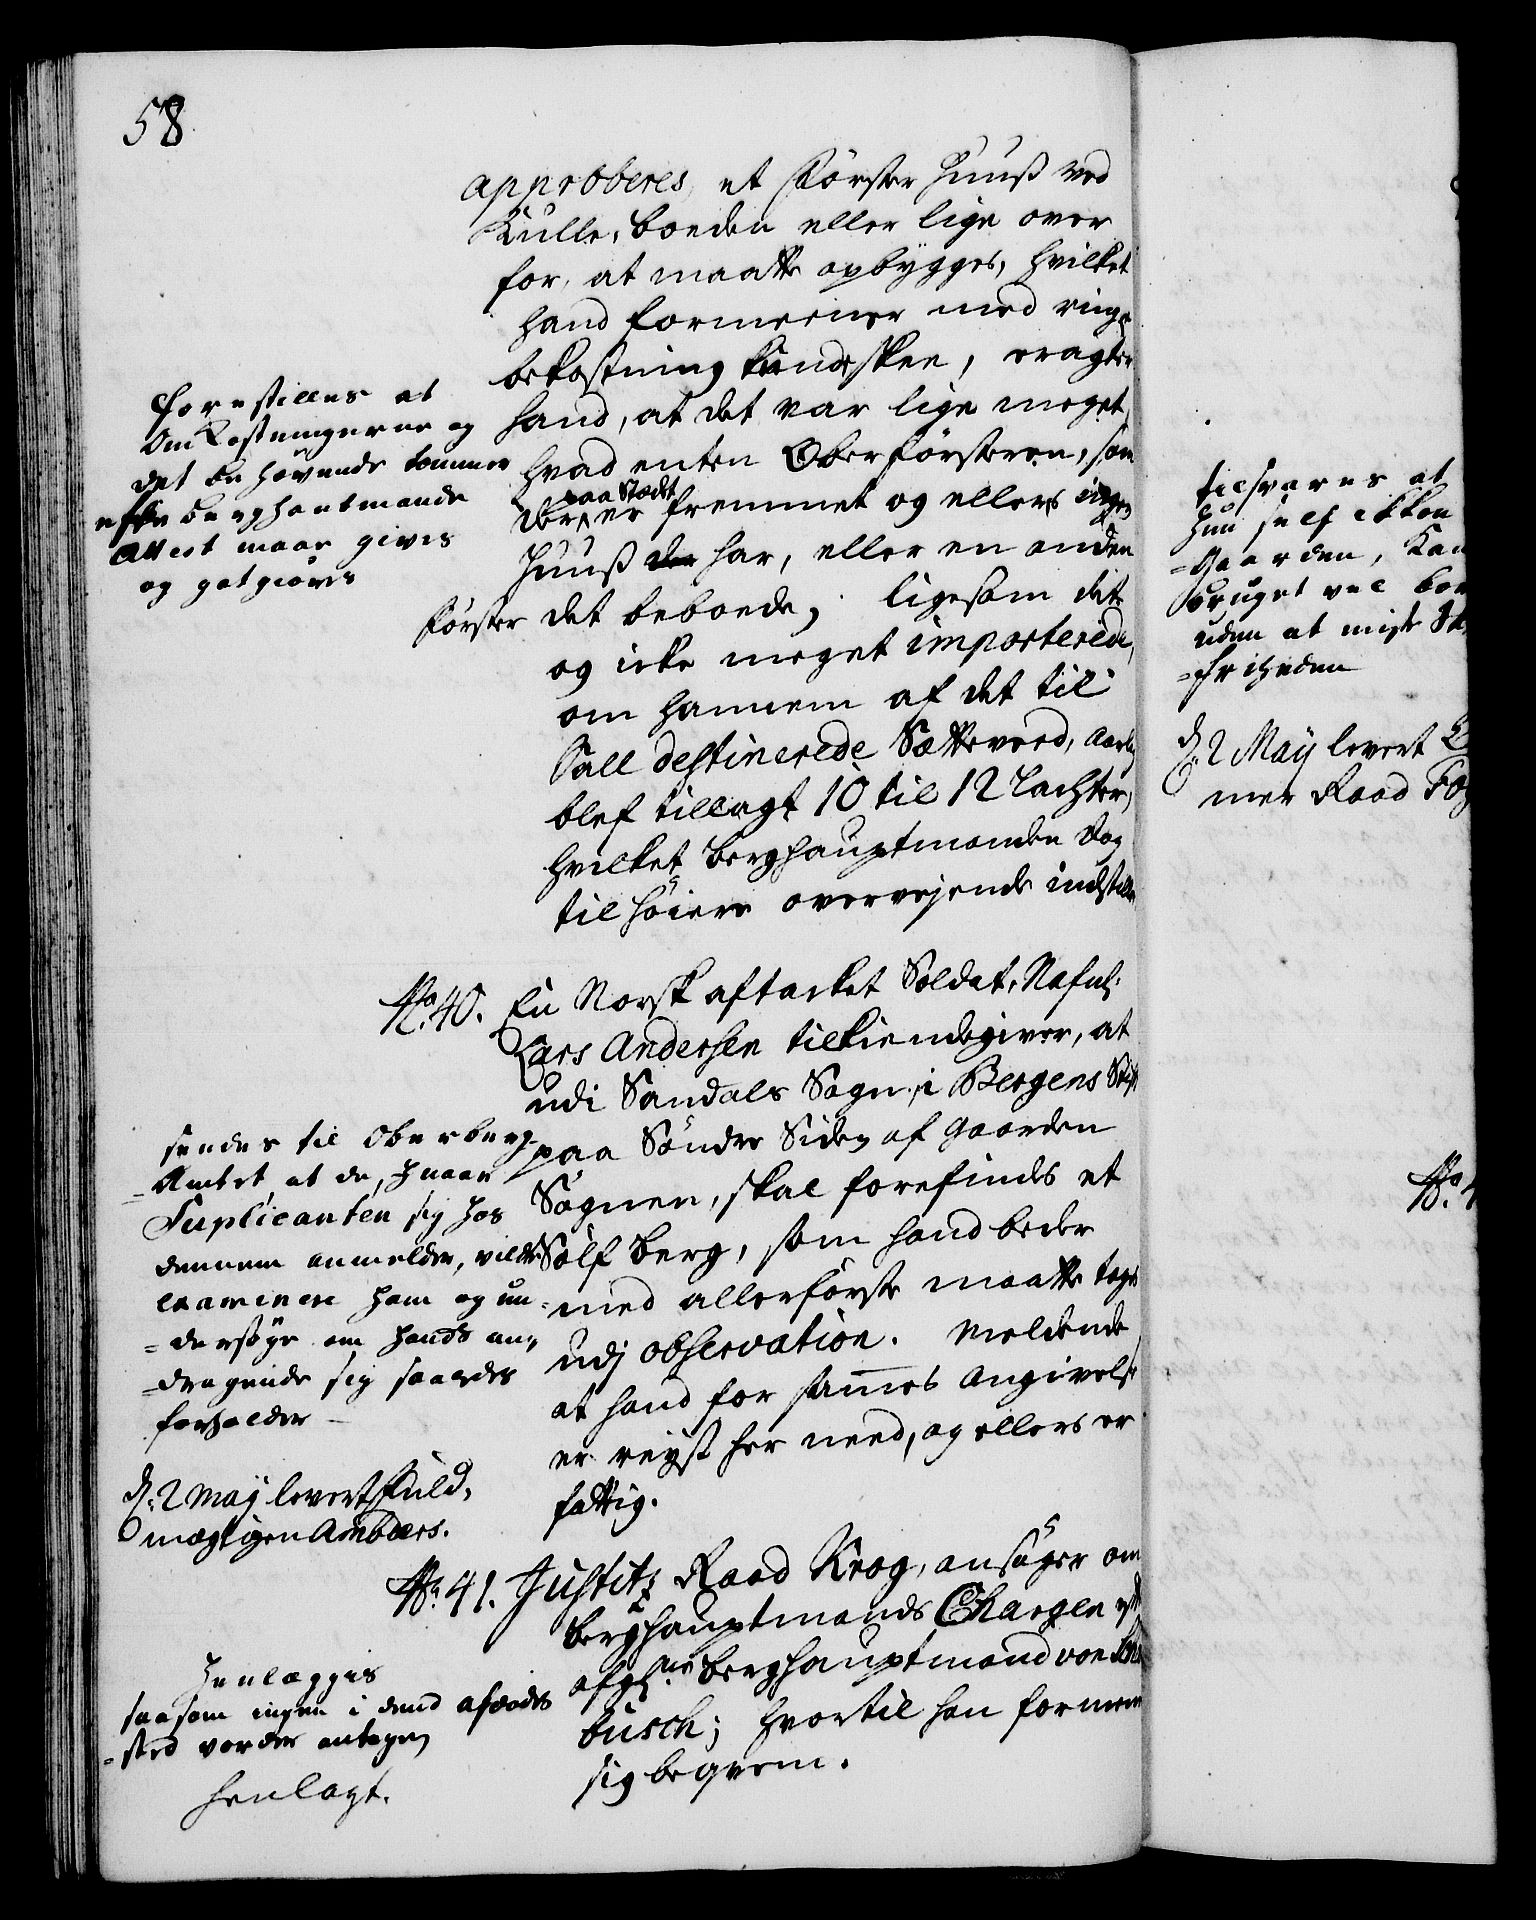 58
approberes, et Förster Huuß ved
Kulle, boeden eller lige over
for, at maatte opbygges, hvilket
hand formeener med ringe
bekostning kunde skee, eragter
hand, at det var lige meget,
hvad enten Oberförsteren, som
paa Stædet
der er fremmet og ellers ingen
Huuß der har, eller en anden
Förster det beboede; ligesom det
og icke meget importerede,
om hannem af det til
Sall destinerede Sætteveed, aarlig
blef tillagt 10 til 12 Lachter,
hvilket berghauptmanden dog
til höiere overvejende indstiller
Forestilles at
Omkostningerne og
det be hövende tømmer
efter berghaubtmands
Attest maae gives
og gotgiøres
No. 40. En Norsk aftacket Soldat, Nafnl:
Lars Andersen tilkiendegiver, at
udi Sandals Sogn, i Bergens Stift
paa Söndre Siden af Gaarden
Sognen, skal forefindes et
Sölf berg, som hand beder
med allerförste maatte tages
udj observation. Meldende
at hand for sammes angivelse
er reyst her need, og ellers er
fattig.
sendes til Oberberg
-Amtet, at de, Hnaar
Suplicanten sig hos
dennem anmelder, vilde
examinere ham og un-
-dersøge om hands an-
-dragende sig saaledes
forholder
d. 2 May levert Fuld,
mægtigen Ambders.
No. 41. Justitz Raad Krog, ansöger om
berghauptmands Chargen efter
afg. berghauptmand von
busch; hvortil han formeener
sig beqvem.
Henlægges
saasom ingen i dend afdødes
-sted vorder antagen
henlagt.
tilsvares at
hun self ikken
-Gaarden, Kan
bruget vel
uden at miste
-friheden
d. 2 May levert
mer Raad
No. 4